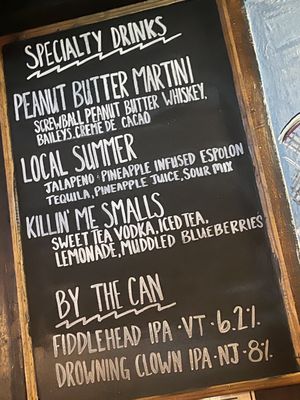 SPECIALTY DRINKS
PEANUT BUTTER MARTINI
SCREWBALL PEANUT BUTTER WHISKEY,
BAILEYS, CREME DE CACAO
LOCAL SUMMER
JALAPENO + PINEAPPLE INFUSED ESPOLON
TEQUILA, PINEAPPLE JUICE, SOUR MIX
KILLIN' ME SMALLS
SWEET TEA VODKA, ICED TEA,
LEMONADE, MUDDLED BLUEBERRIES
BY THE CAN
FIDDLEHEAD IPA · VT · 6.2%
DROWNING CLOWN IPA · NJ · 8%